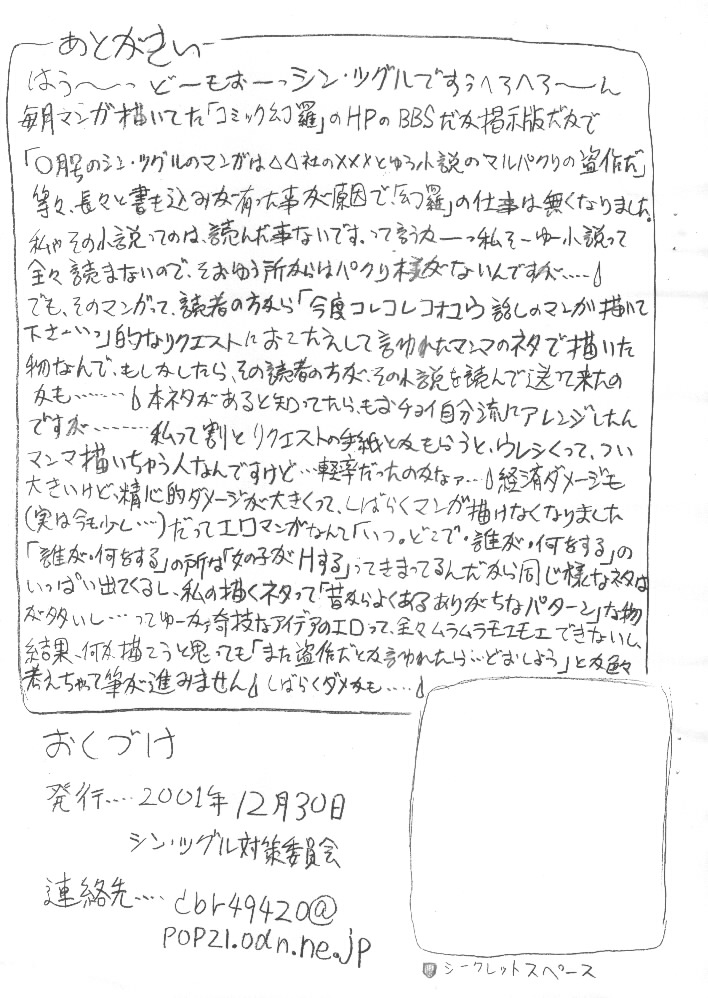 あとがきぃ
はぅ〜っ どーもおーっシン・ツグルですぅへろへろ〜ん
毎月マンガ描いてた「コミック幻羅」のHPのBBSだか掲示版だかで
「○月号のシン・ツグルのマンガは△△社の×××とゆう小説のマルパクリの盗作だ」
等々、長々と書き込みが有った事が原因で「幻羅」の仕事は無くなりました。
私ゃその小説ってのは、読んだ事ないです、って言うかーっ私そーゆー小説って
全々読まないので、そおゆう所からはパクり様がないんですが……
でも、そのマンガって、読者の方から「今度コレコレコオユウ話しのマンガ描いて
下さーいっ」的なリクエストにおこたえして言われたマンマのネタで描いた
物なんで、もしかしたら、その読者の方が、その小説を読んで送って来たの
かも……… 本ネタがあると知ってたら、もおチョイ自分流にアレンジしたん
ですが……… 私って割とリクエストの手紙とかもらうと、ウレシくって、つい
マンマ描いちゃう人なんですけど…軽率だったのかなァ… 経済ダメージも
大きいけど、精心的ダメージが大きくって、しばらくマンガ描けなくなりました
(実は今も少し…)だってエロマンガなんて「いつ。どこで・誰が・何をする」の
「誰が・何をする」の所は「女の子がHする」ってきまってるんだから同じ様なネタは
いっぱい出てくるし、私の描くネタって「昔からよくあるありがちなパターン」な物
が多いし…ってゆーか、奇技なアイデアのエロって、全々ムラムラモエモエできないし、
結果、何か描こうと思っても「また盗作だとか言われたら…どおしよう」とか色々
考えちゃって筆が進みません しばらくダメかも……
おくづけ
発行‥‥2001年12月30日
シン・ツグル対策委員会
連絡先‥‥cbr49420@
POP21.odn.ne.jp
シークレットスペース